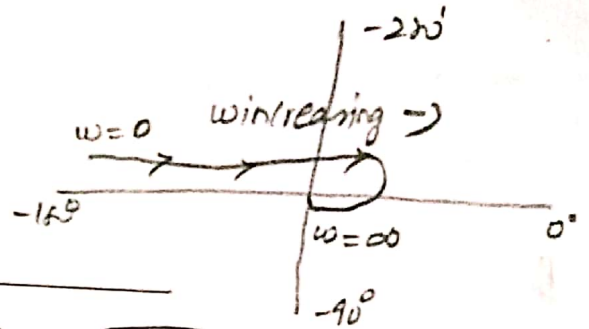 -270°
w increasing →
w=0
-180°
w=∞
0°
-90°